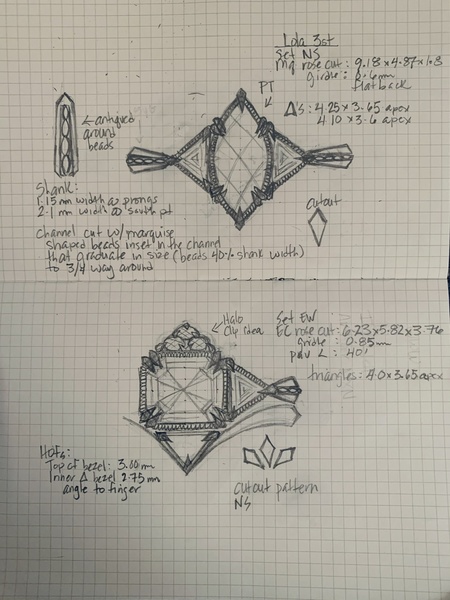 Lola 3st
Set NS
Mq rose cut: 9.18 x 4.87 x 1.8
girdle: 0.6mm
flatback
PT
Δ's: 4.25 x 3.65 apex
4.10 x 3.6 apex
antiqued
ground
beads
cutout
Shank:
1.15 mm width @ prongs
2.1 mm width @ south pt
Channel cut w/ marquise
shaped beads inset in the channel
that graduate in size (beads 40% shank width)
to 3/4 way around
Halo
Clip idea
Set EW
EC rose cut: 6.23 x 5.82 x 3.76
girdle: 0.85mm
pav L: 40°
triangles: 4.0 x 3.65 apex
HOFs:
Top of bezel: 3.00 mm
Inner Δ bezel 2.75 mm
angle to finger
cutout pattern
NS